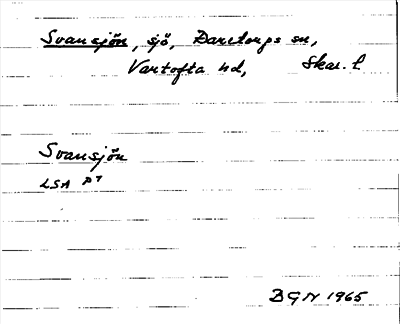 Svansjön, sjö, Daretorps sn,
Vartofta hd, Skar. l
Svansjön
LSA P7
BGN 1965